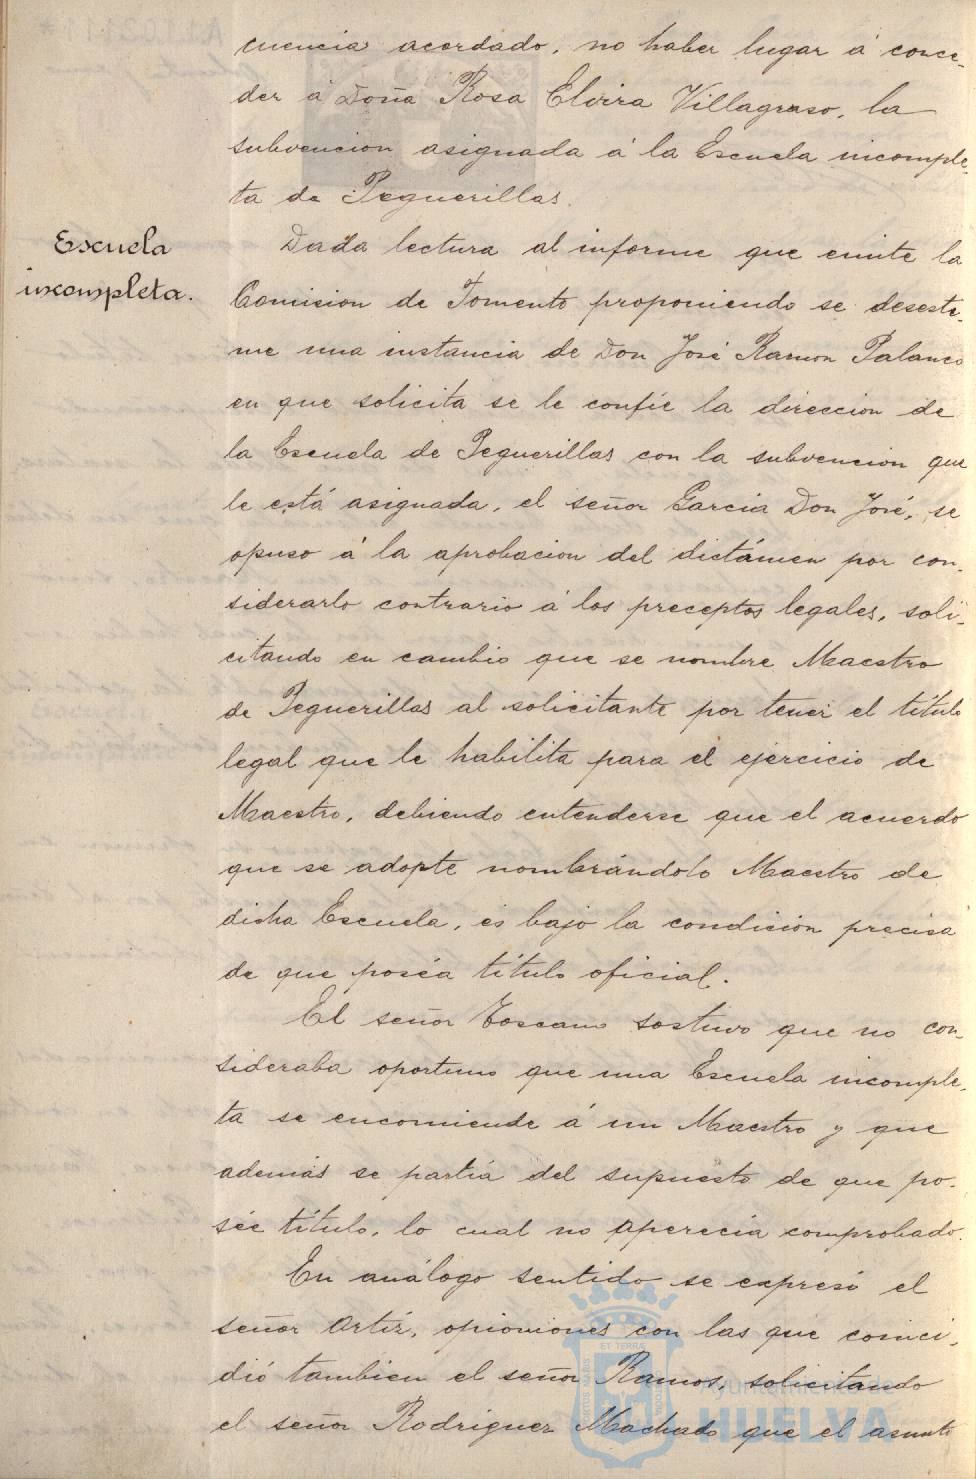 cuencia acordado, no haber lugar á conce-
der á Doña Rosa Elvira Villagraso, la
subvencion asignada á la Escuela incomple-
ta de Peguerillas.
Escuela
incompleta.
Dada lectura al informe que emite la
Comision de Fomento proponiendo se desesti-
me una instancia de Don José Ramon Palanco
en que solicita se le confie la direccion de
la Escuela de Peguerillas con la subvencion que
le está asignada, el señor Garcia Don José, se
opuso á la aprobacion del dictámen por con-
siderarlo contrario á los preceptos legales, soli-
citando en cambio que se nombre Maestro
de Peguerillas al solicitante por tener el título
legal que le habilita para el ejercicio de
Maestro, debiendo entenderse que el acuerdo
que se adopte nombrándolo Maestro de
dicha Escuela, es bajo la condición precisa
de que poséa título oficial.
El señor Toscano sostuvo que no con-
sideraba oportuno que una Escuela incomple-
ta se encomiende á un Maestro y que
además se partía del supuesto de que po-
sée título, lo cual no aperecia comprobado.
En análogo sentido se expresó el
señor Ortiz, opioniones con las que coinci-
dió tambien el señor Ramos, solicitando
el señor Rodriguez Machado que el asunto
Ayuntamiento de
HUELVA